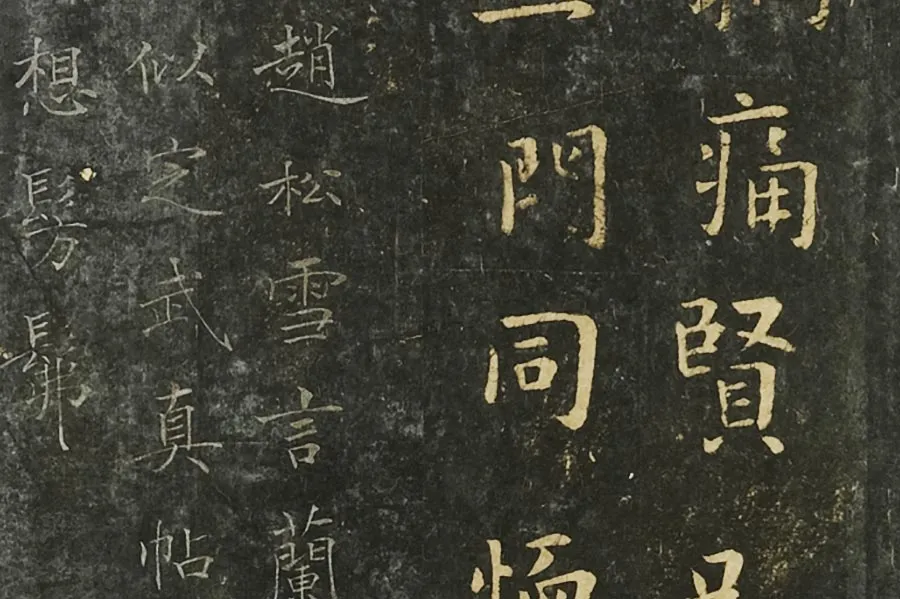 痛賢
門同
趙松雪言蘭
似定武真帖
想髣髴